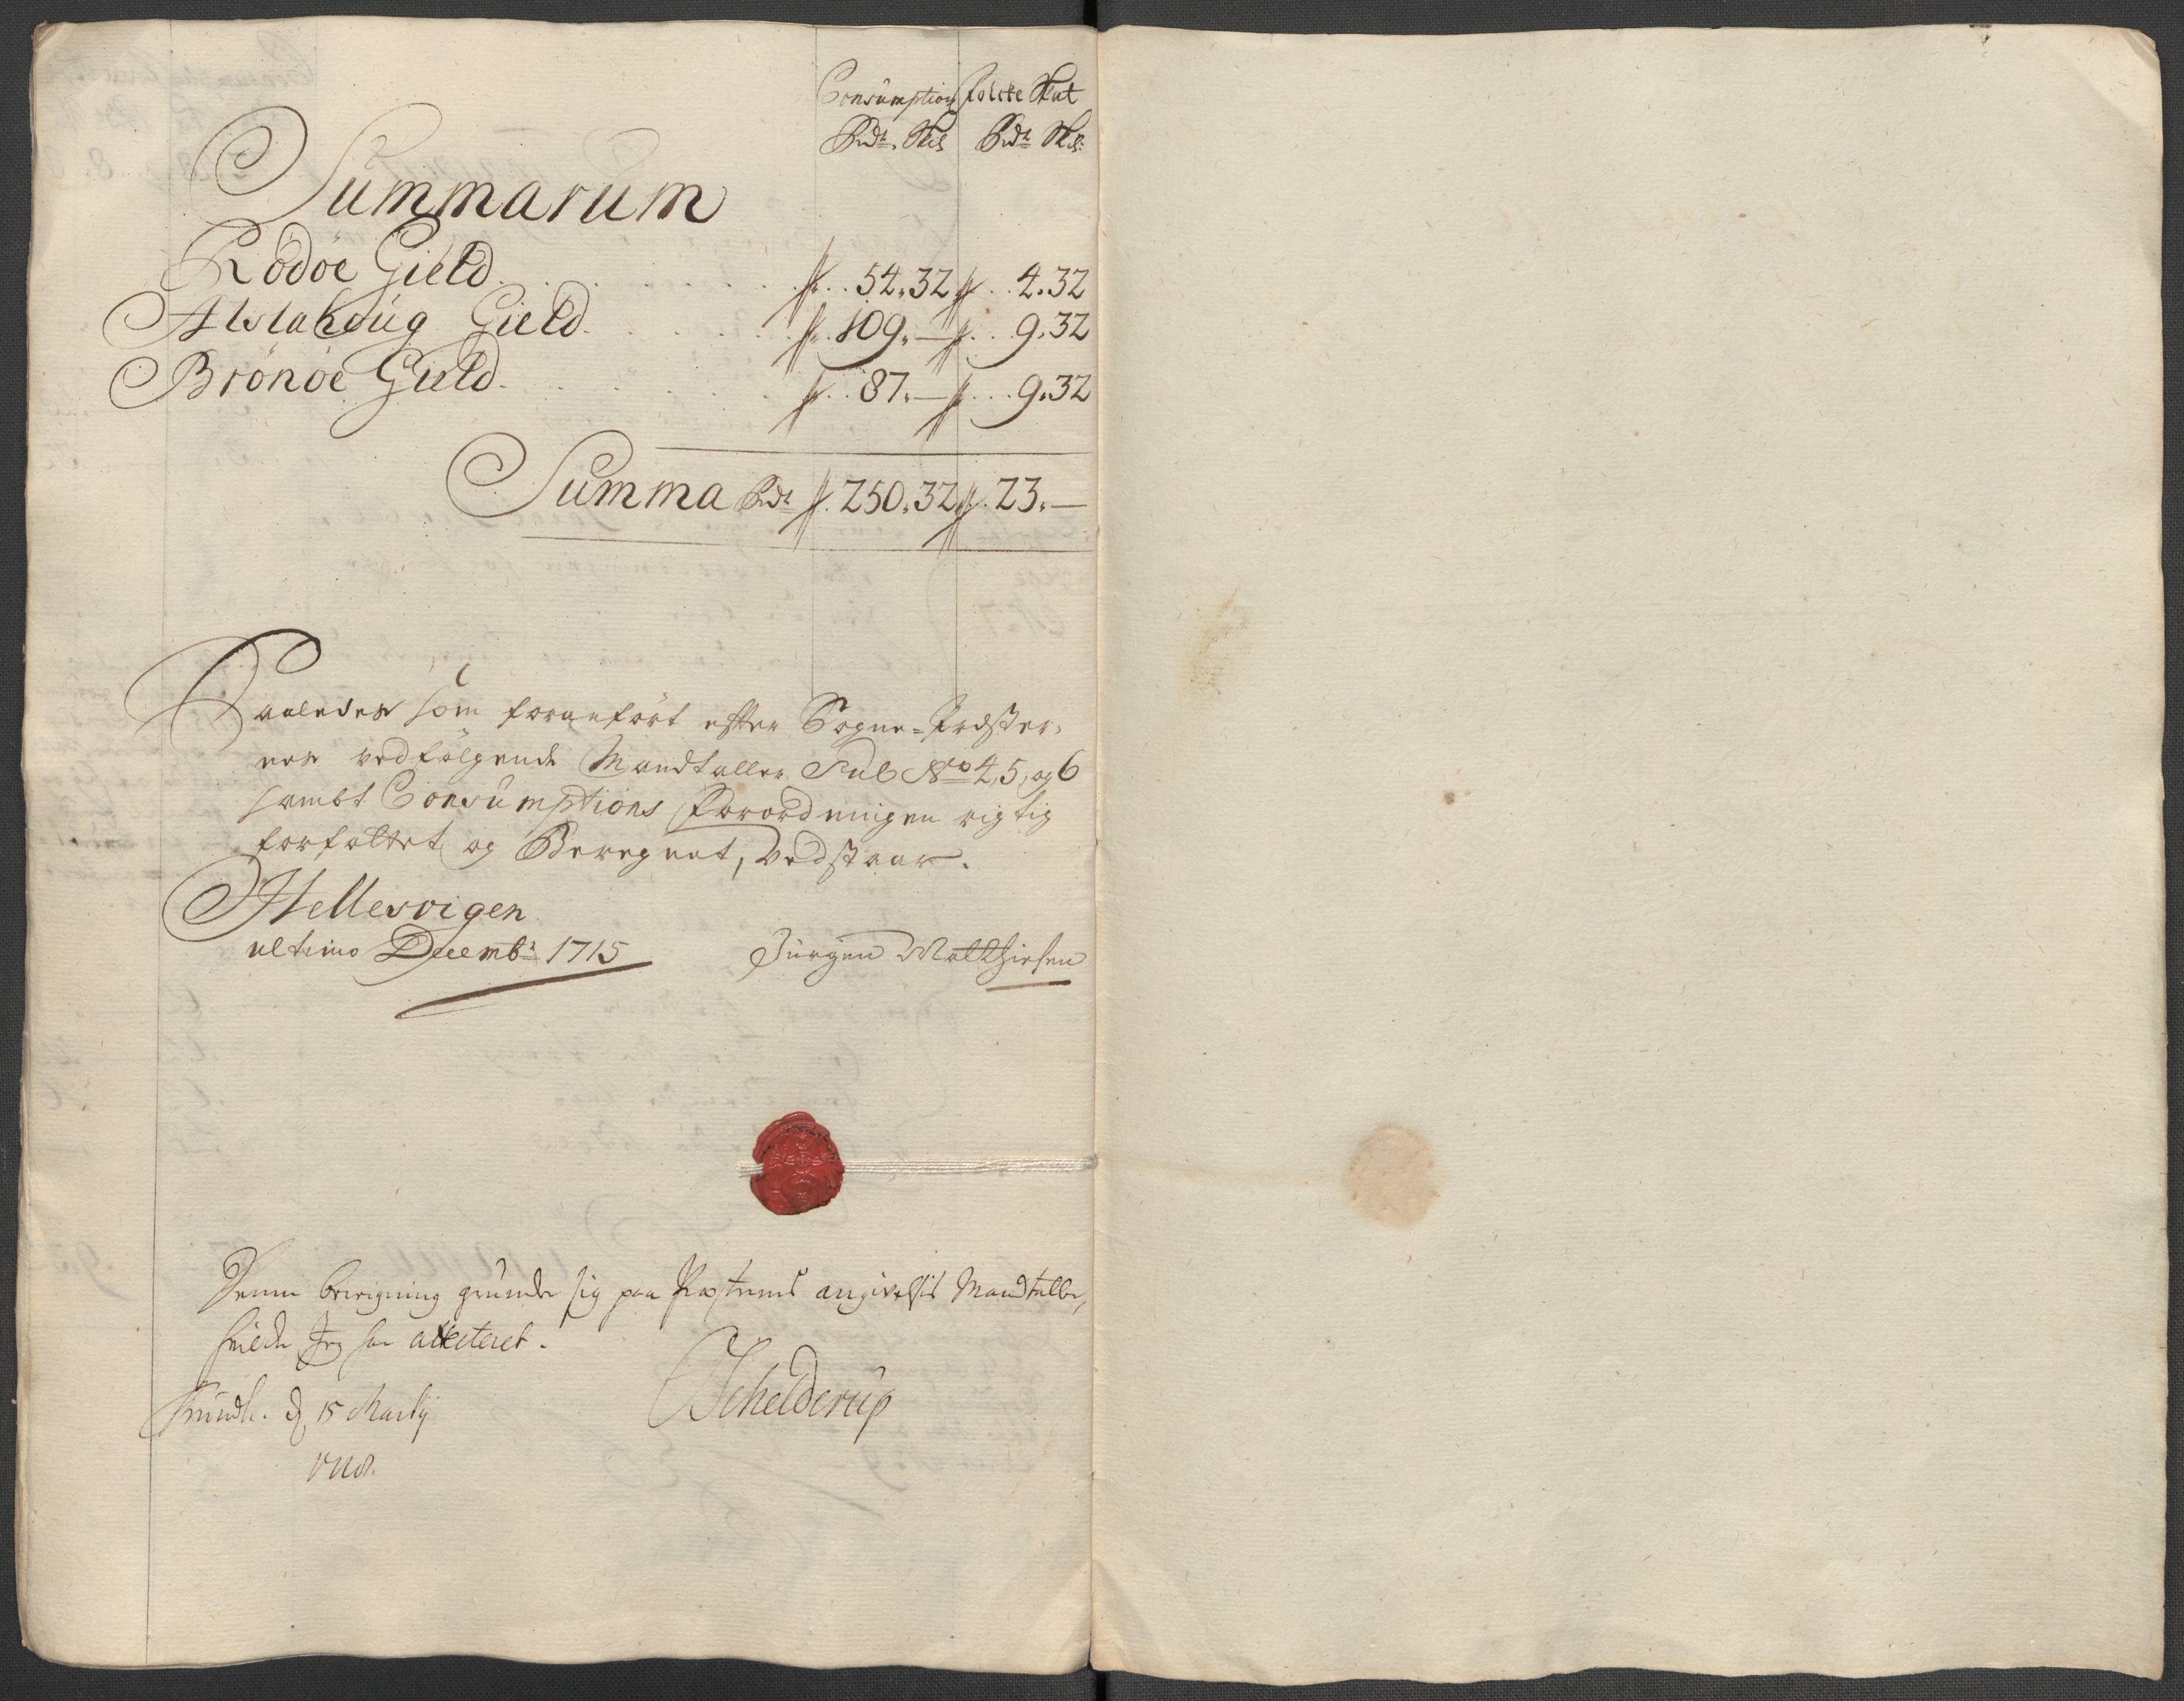 Consumption Folcke Skat
Rdr. Skil Rdr Skil:
Summarum
Rödöe Gield. . . . . . . . . 54. 32 . . 4. 32
Alstahoug Gield. . . . . . . 109. — . . 9. 32
Brönöe Gield. . . . . . . . 87. — . . . 9. 32
Summa Rdr 250. 32. 23. —
Saaledes som foranfört efter Sogne-Præster-
nes vedfølgende Mandtaller Sub No 4, 5, og 6
sambt Consumptions Forordningen rigtig
forfattet og Beregnet, Vedstaar.
Hellesvigen
ultimo Decembr 1715 Jürgen Matthiesen
Denne beregning grunder sig paa Præsternes angivelsis Mandtaller,
huilche Jeg har attesteret.
d 15 Martij Schelderup